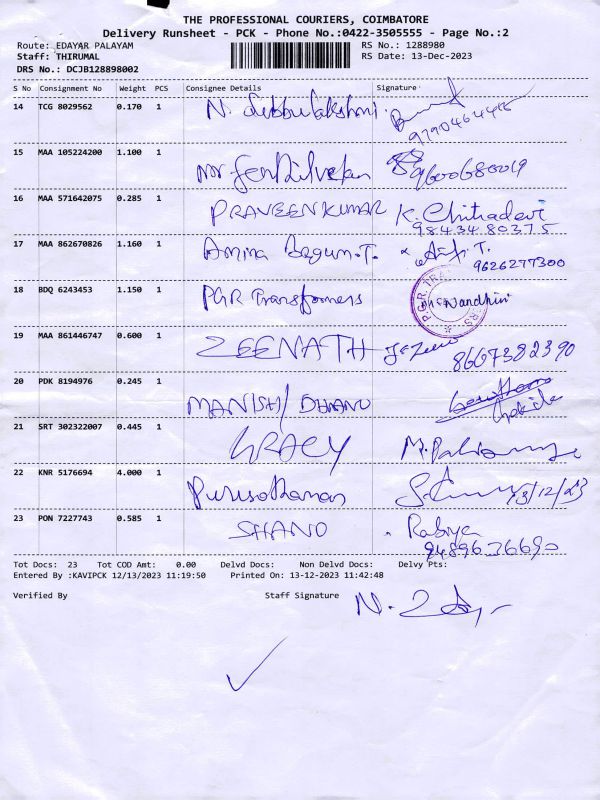 THE PROFESSIONAL COURIERS, COIMBATORE
Delivery Runsheet - PCK - Phone No.:0422-3505555 - Page No.:2
Route: EDAYAR PALAYAM RS No.: 1288980
Staff: THIRUMAL RS Date: 13-Dec-2023
DRS No.: DCJB128898002
S No Consignment No Weight PCS Consignee Details Signature
14 TCG 8029562 0.170 1 N. Subbulakshmi
9790464415
15 MAA 105224200 1.100 1 Mr Senthilvelan 9600680019
16 MAA 571642075 0.285 1 PRAVEEN KUMAR K. Chitradevi
98434 80375
17 MAA 862670826 1.160 1 Amina Begum.T. T.
9626277300
18 BDQ 6243453 1.150 1 PGR Transformers Nandhini
19 MAA 861446747 0.600 1 ZEENATH 8667382390
20 PDK 8194976 0.245 1 MANISH/ DHANU
21 SRT 302322007 0.445 1 GRACY
22 KNR 5176694 4.000 1 Purusothaman 13/12/23
23 PON 7227743 0.585 1 SHANO Rabiya
9489636690
Tot Docs: 23 Tot COD Amt: 0.00 Delvd Docs: Non Delvd Docs: Delvy Pts:
Entered By :KAVIPCK 12/13/2023 11:19:50 Printed On: 13-12-2023 11:42:48
Verified By Staff Signature